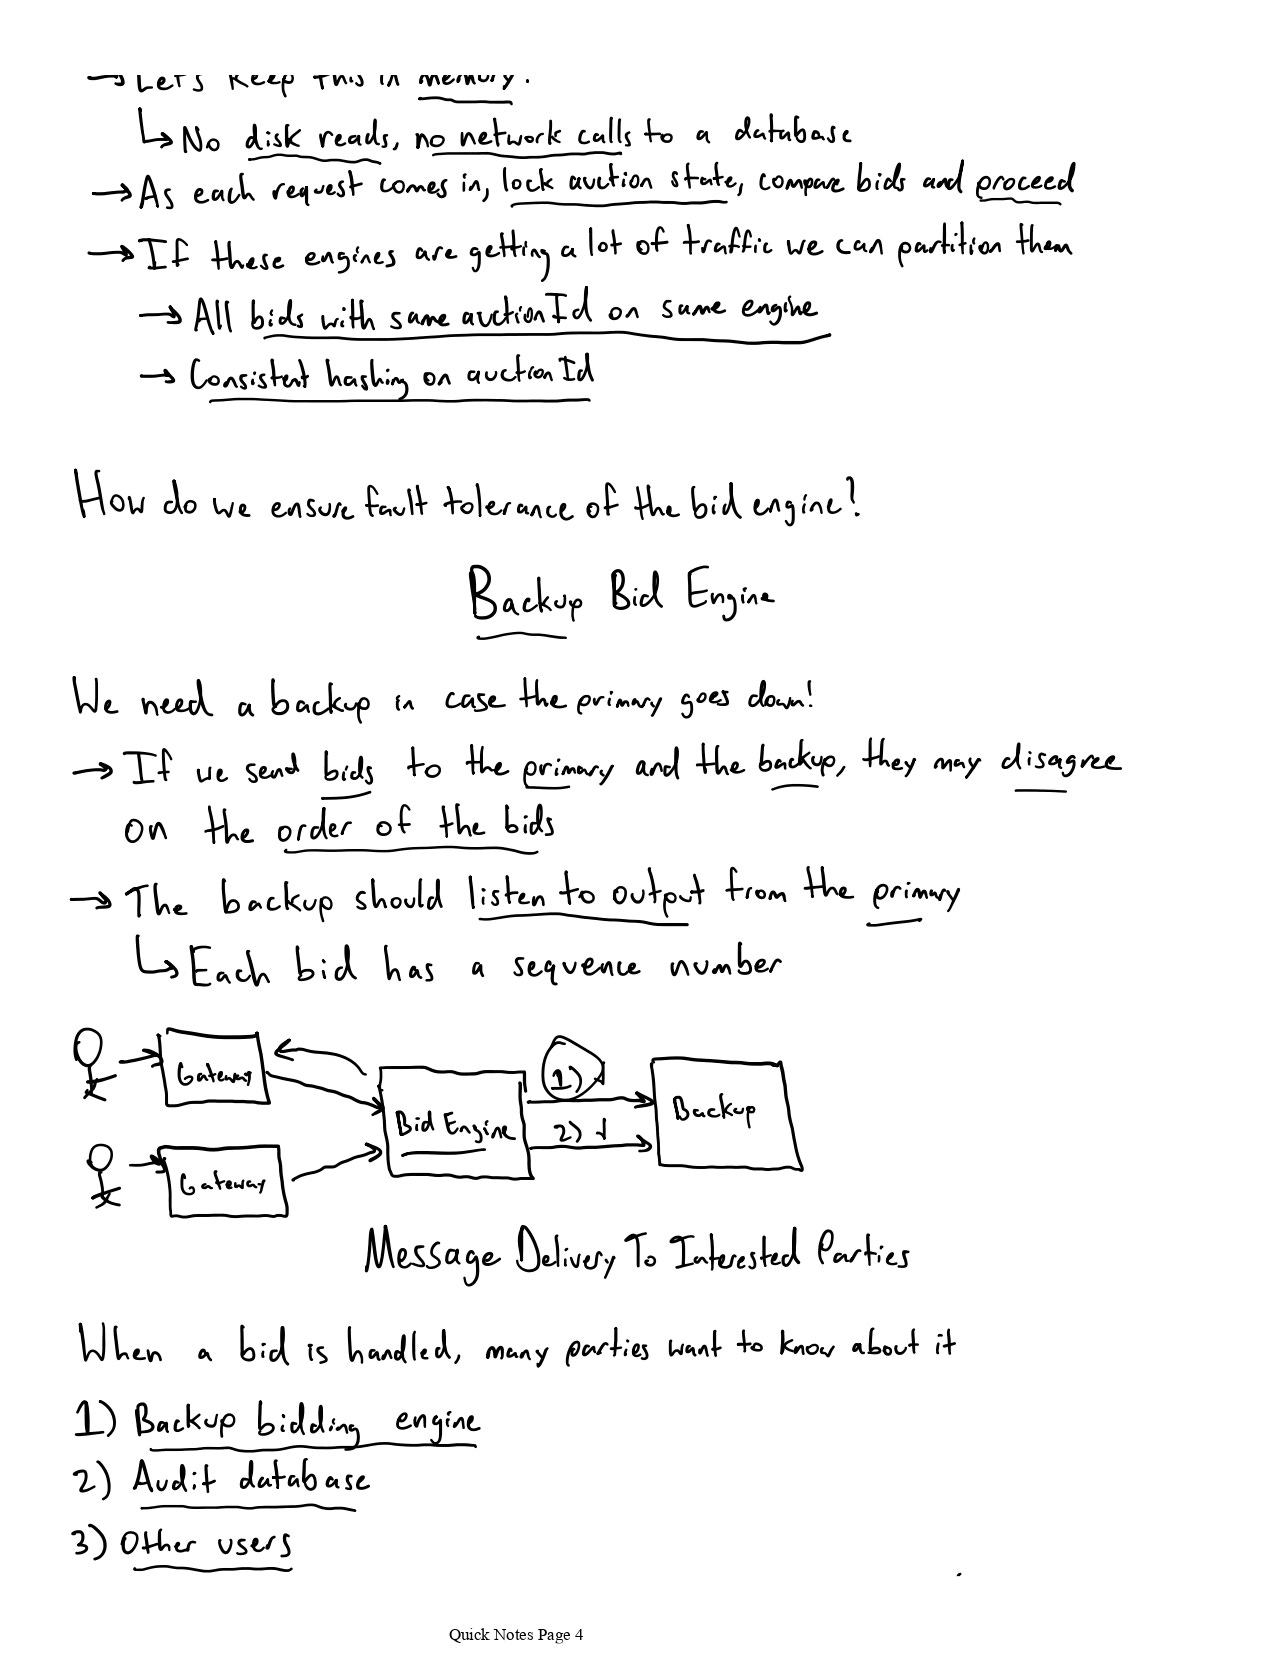 → Let's keep this in memory!
↳ No disk reads, no network calls to a database
→ As each request comes in, lock auction state, compare bids and proceed
→ If these engines are getting a lot of traffic we can partition them
→ All bids with same auctionId on same engine
→ Consistent hashing on auctionId
How do we ensure fault tolerance of the bid engine?
Backup Bid Engine
We need a backup in case the primary goes down!
→ If we send bids to the primary and the backup, they may disagree
on the order of the bids
→ The backup should listen to output from the primary
↳ Each bid has a sequence number
Gateway
Bid Engine
1)
2)
Backup
Gateway
Message Delivery To Interested Parties
When a bid is handled, many parties want to know about it
1) Backup bidding engine
2) Audit database
3) Other users
Quick Notes Page 4